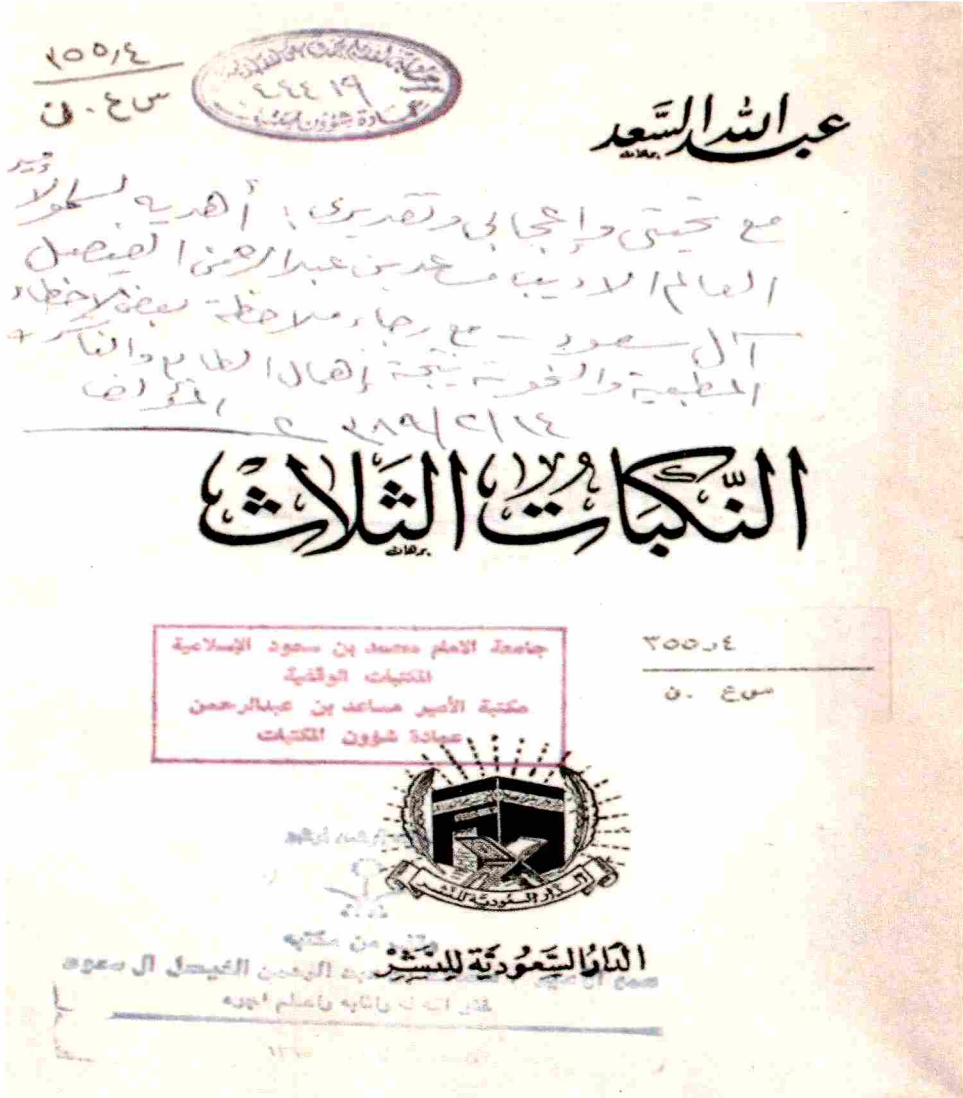 ٣٥٥٫٤
س ع . ن
٤٤٤١٩
عمادة شؤون المكتبات
عبد الله السَّعد
برهان
مع تحيتي وإعجابي وتقديري؛ أهديه لسمو الأمير
العالم الاديب مساعد بن عبد الرحمن الفيصل
آل سعود - مع رجاء ملاحظة بعض الاخطاء
المطبعية والنحوية نتيجة إهمال الطابع والناشر
المؤلف
١٤/٢/٣٨٩
النَّكبَات الثَلاث
برهان
جامعة الامام محمد بن سعود الإسلامية
المكتبات الوقفية
مكتبة الأمير مساعد بن عبدالرحمن
عمادة شؤون المكتبات
٣٥٥٫٤
س ع . ن
الدَّار السُّعوديَّة للنشر
الدَّارُ السُّعوديَّة للنشْرْ
الفيصل ال سعود